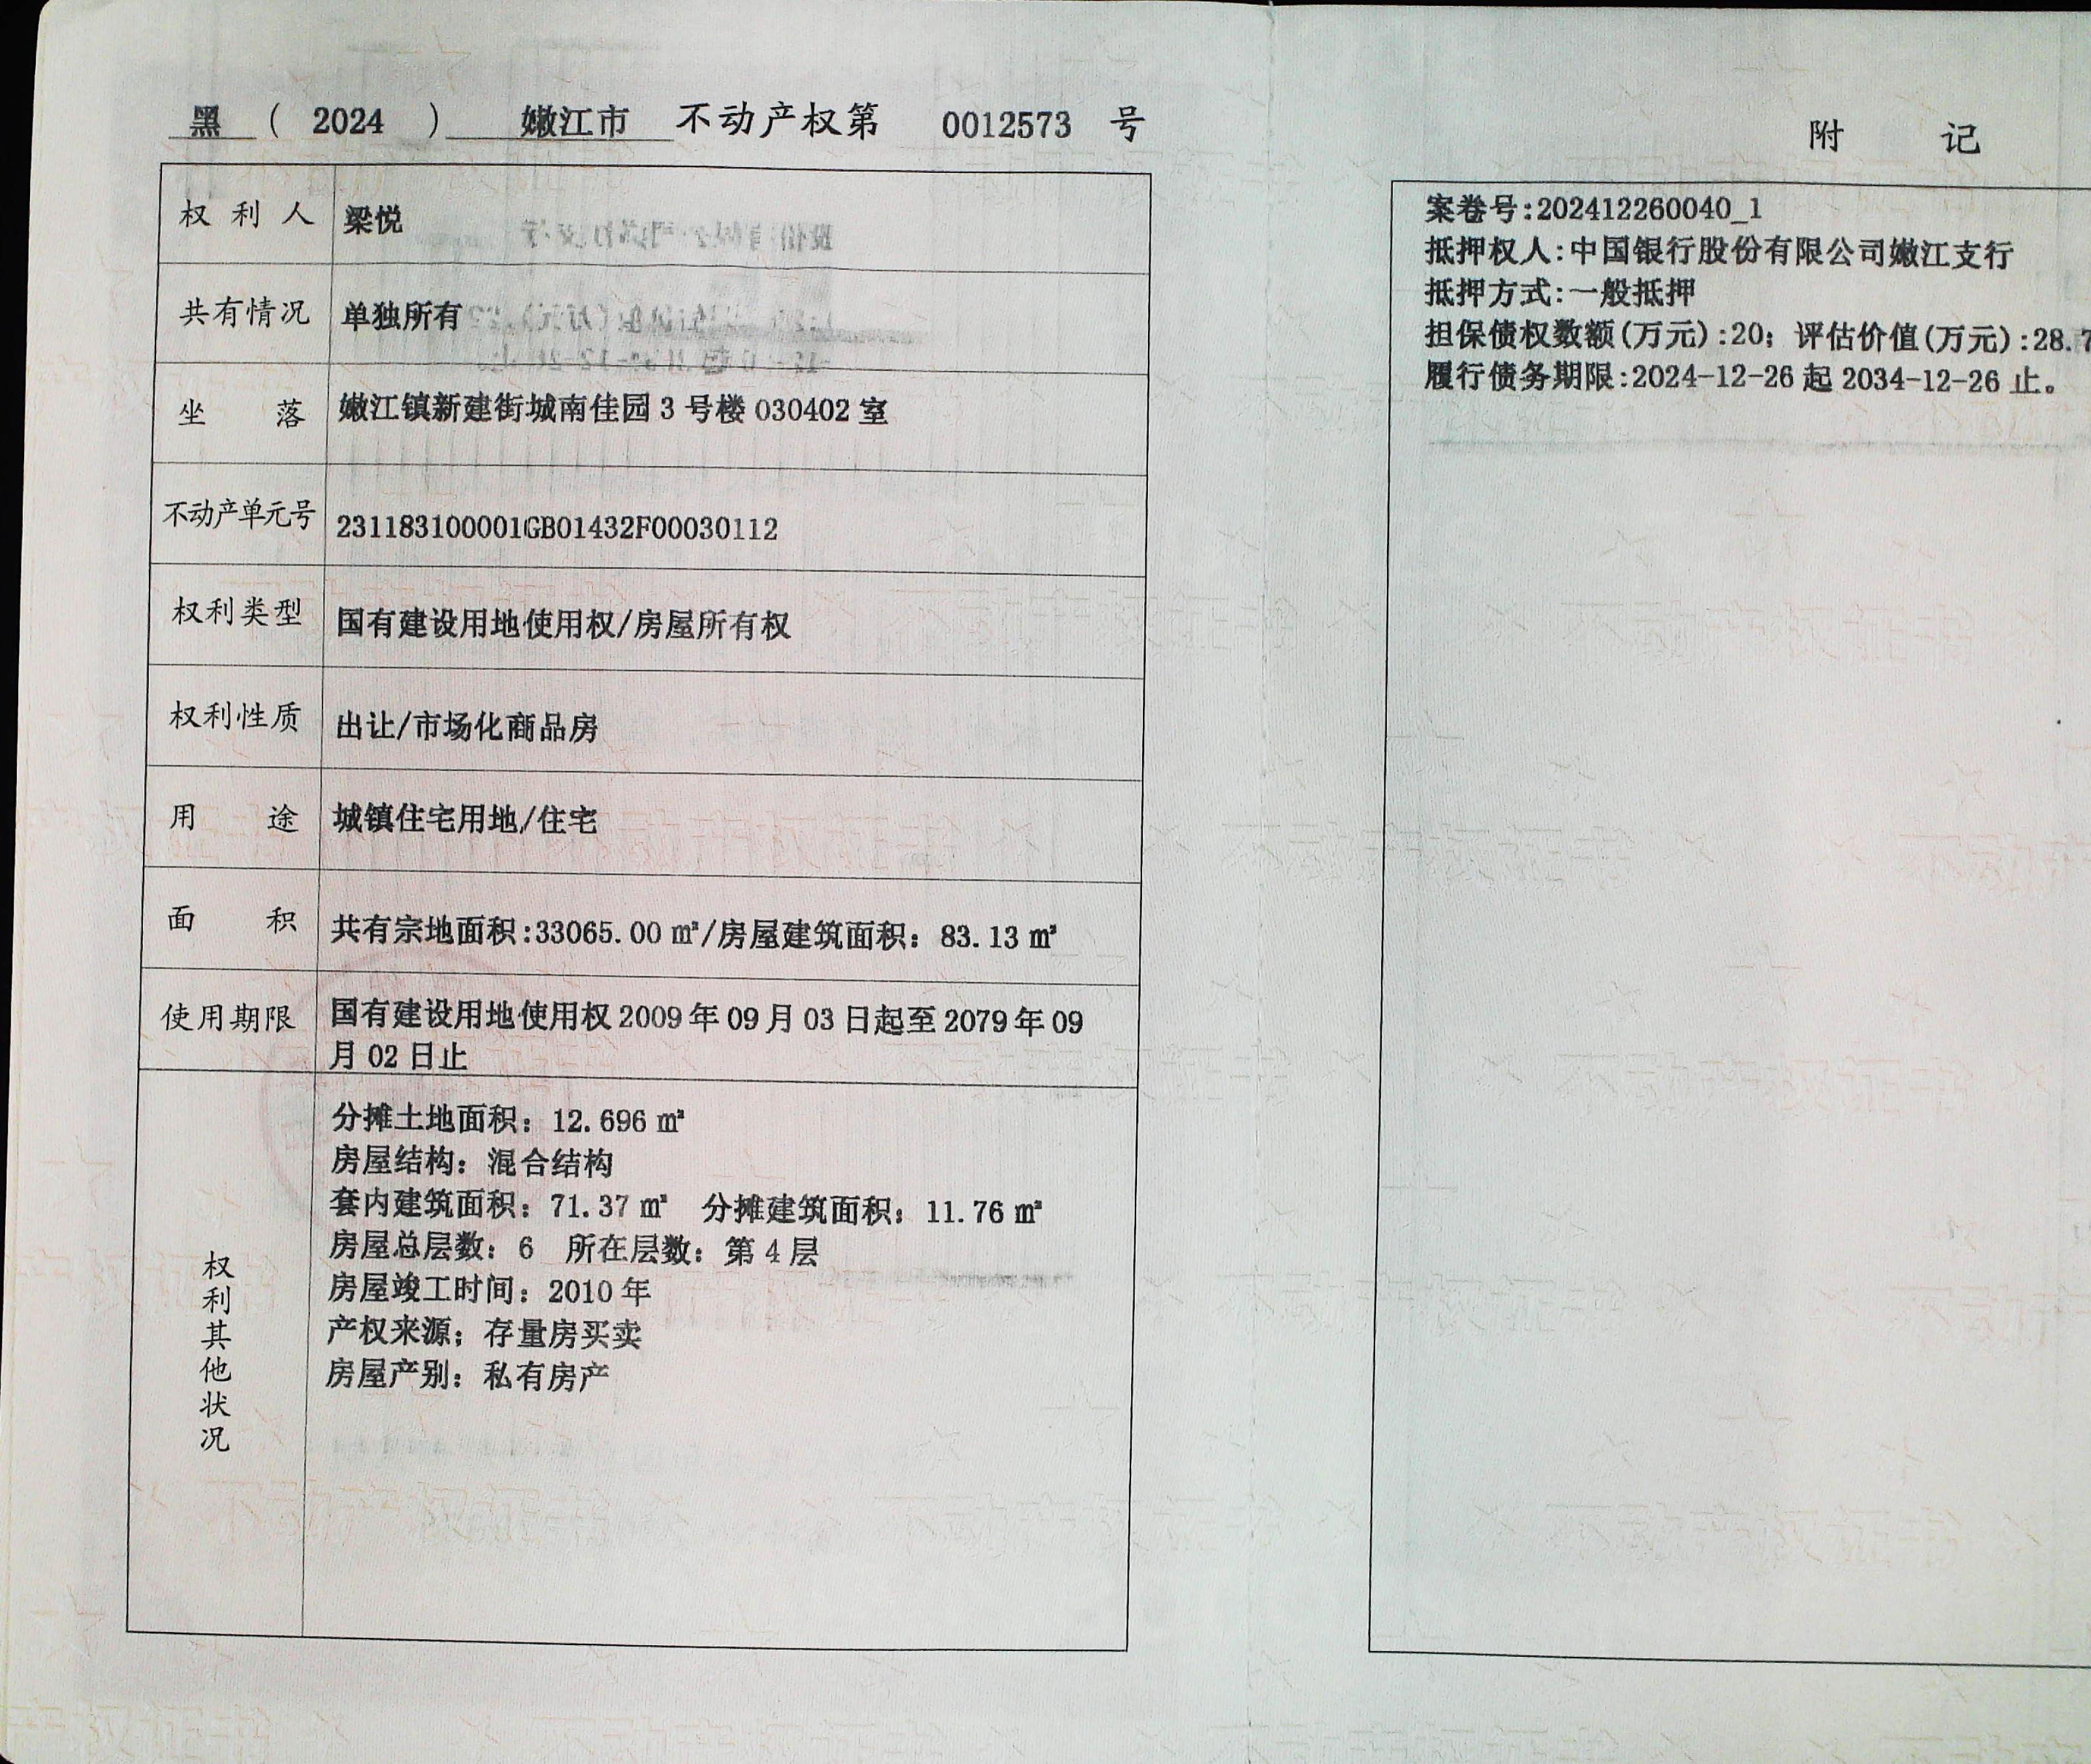 黑 ( 2024 ) 嫩江市 不动产权第 0012573 号
权利人 梁悦
共有情况 单独所有
坐落 嫩江镇新建街城南佳园 3 号楼 030402 室
不动产单元号 231183100001GB01432F00030112
权利类型 国有建设用地使用权/房屋所有权
权利性质 出让/市场化商品房
用途 城镇住宅用地/住宅
面积 共有宗地面积:33065.00 ㎡/房屋建筑面积：83.13 ㎡
使用期限 国有建设用地使用权 2009 年 09 月 03 日起至 2079 年 09
月 02 日止
权利其他状况
分摊土地面积：12.696 ㎡
房屋结构：混合结构
套内建筑面积：71.37 ㎡ 分摊建筑面积：11.76 ㎡
房屋总层数：6 所在层数：第 4 层
房屋竣工时间：2010 年
产权来源：存量房买卖
房屋产别：私有房产
附记
案卷号:202412260040_1
抵押权人:中国银行股份有限公司嫩江支行
抵押方式:一般抵押
担保债权数额(万元):20；评估价值(万元):28.7
履行债务期限:2024-12-26 起 2034-12-26 止。